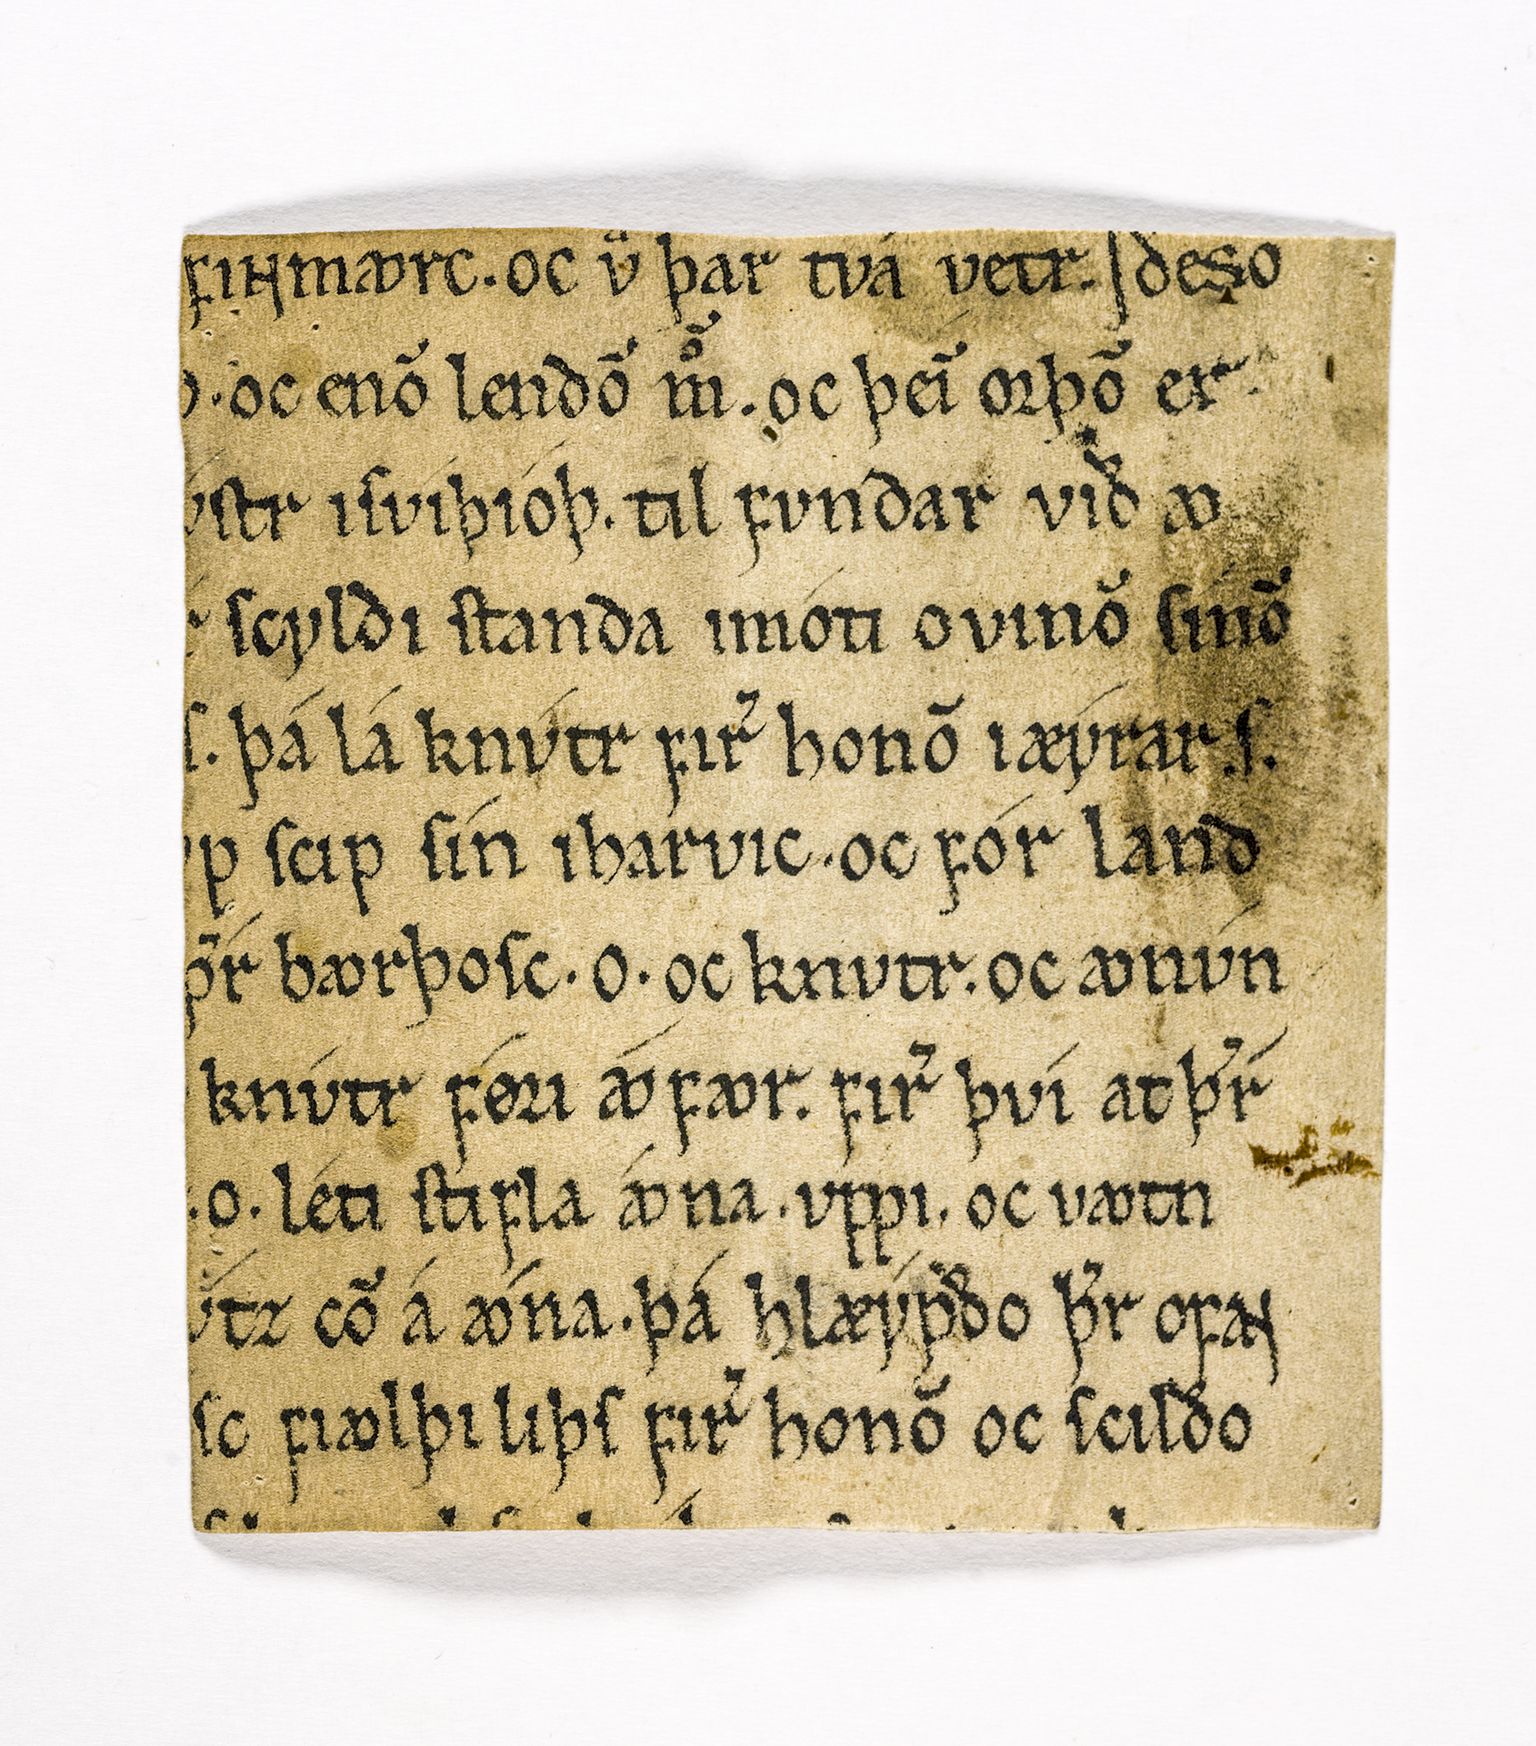 finmꜵrc. oc v͛ þar tvá vetr. ſdeso
. oc enō lendō m̊̄. oc þeī oꝛþō er
vſtr iſviþióþ. til fvndar við ꜵ
ſcyldi ſtanda imóti ovinō ſínō
ſ. þá lá knv́tr fir͛ honō i æýrar ſ.
p ſcip ſín iharvic. oc fór land
þ͛ír bꜵrþoſc. o. oc knvtr. oc ꜵnvn
knv́tr fǿꝛi ꜵ́ fꜵr. fir͛ þvi at þ͛ír
.o. léti ſtifla ꜵ́na. vppi. oc vꜵtn
v́tꝛ cō á ꜵ́na. þá hlæýpðo þ͛r ofaɴ
ſc fiꜵlþi liþſ fir͛ honō oc ſcilðo